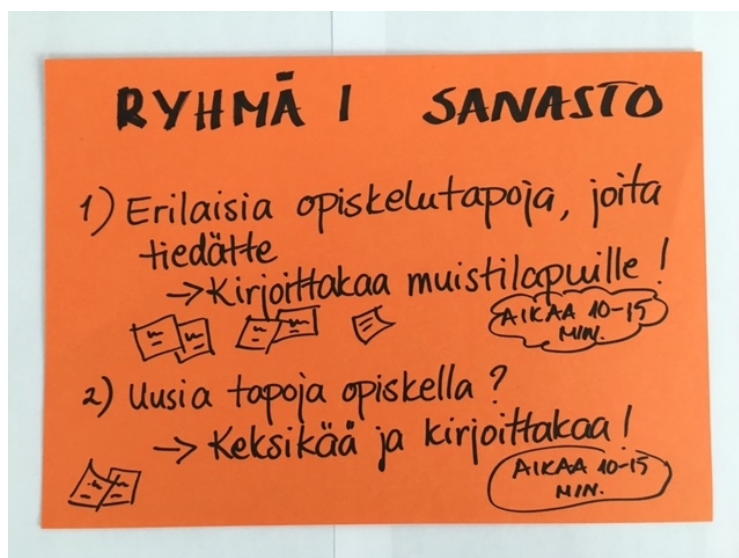 RYHMÄ 1 SANASTO
1) Erilaisia opiskelutapoja, joita
tiedätte
→ Kirjoittakaa muistilapuille!
AIKAA 10-15
MIN.
2) Uusia tapoja opiskella?
→ Keksikää ja kirjoittakaa!
AIKAA 10-15
MIN.